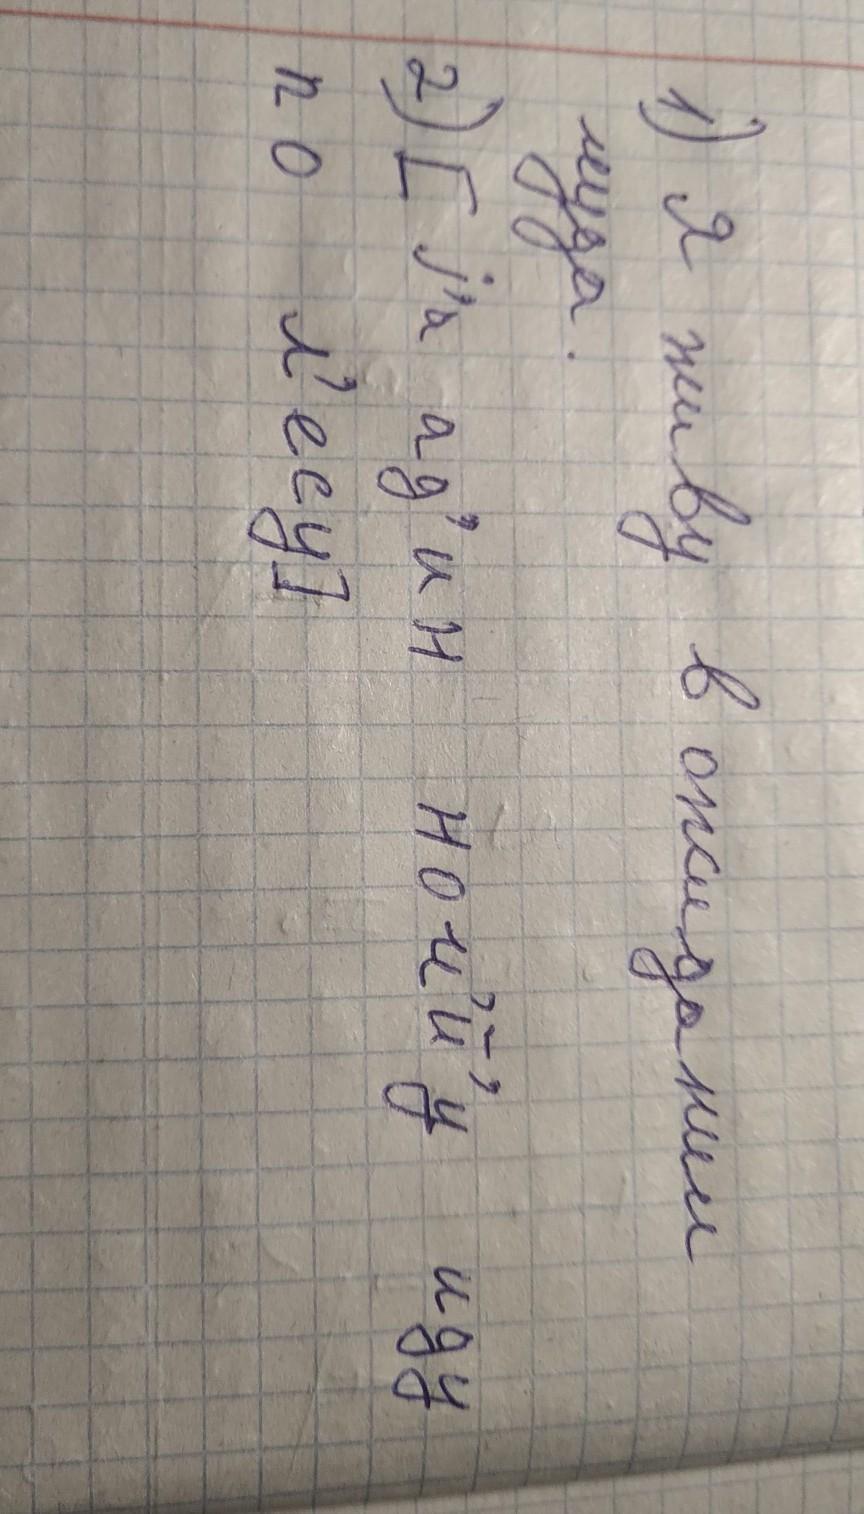 1) Я живу в ожидании
чуда.
2) [j'а ад'ин ноч'й'у иду
по л'есу]